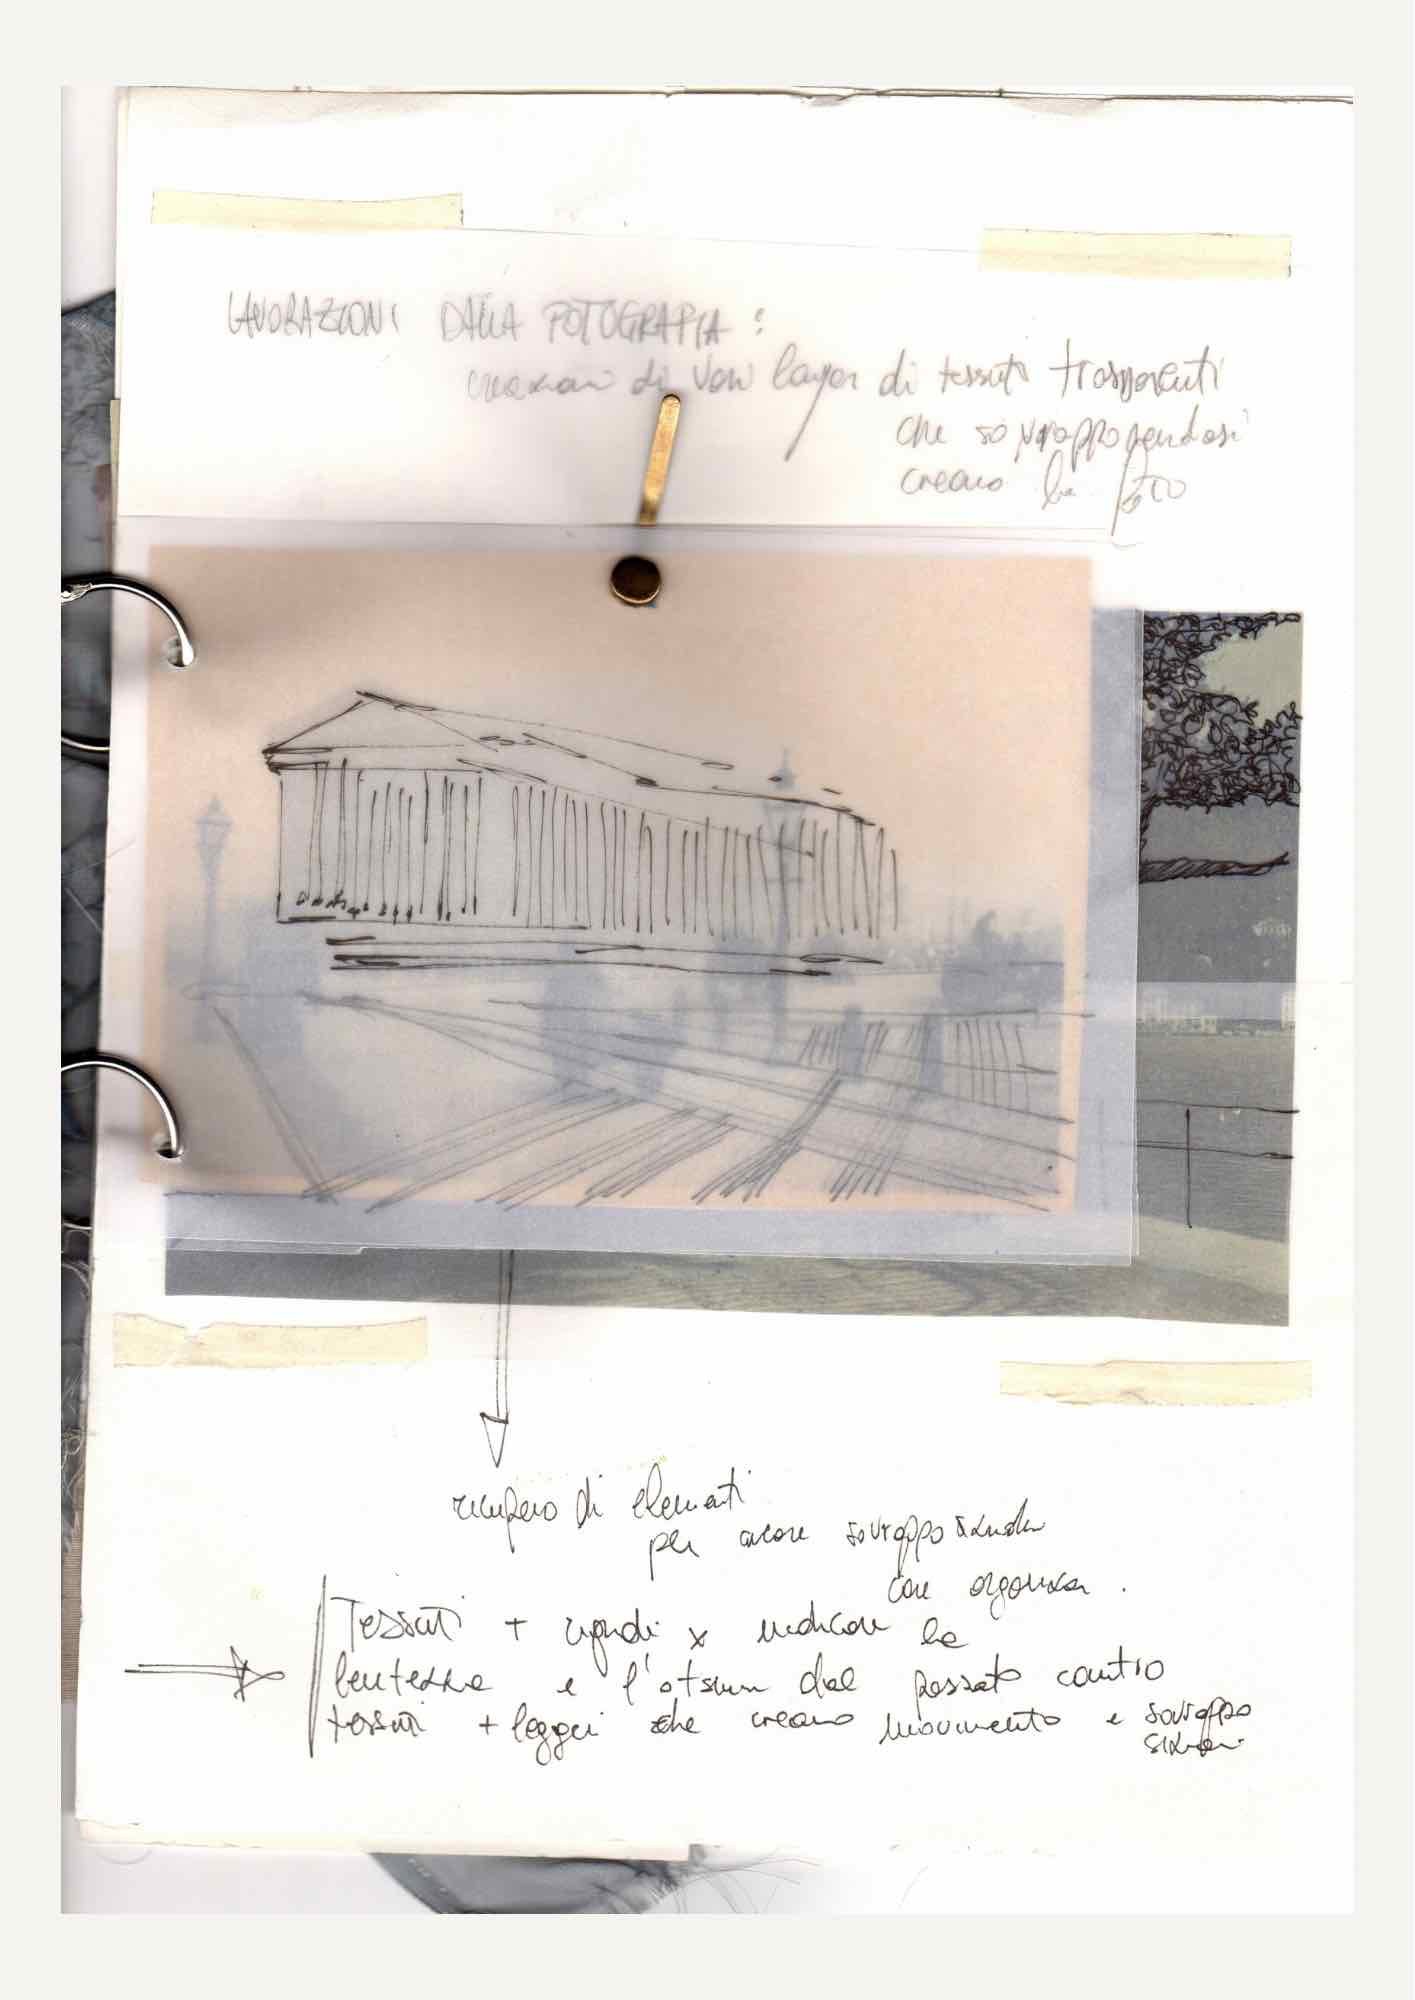 LAVORAZIONI DALLA FOTOGRAFIA :
creazioni di vari layer di tessuti trasparenti
che sovrapponendosi
creano la foto
recupero di elementi
per creare sovrapposizioni
con organza .
Tessuti + rigidi x indicare la
lentezza e l' del passato contro
tessuti + leggeri che creano movimento e sovrappo
sizioni.